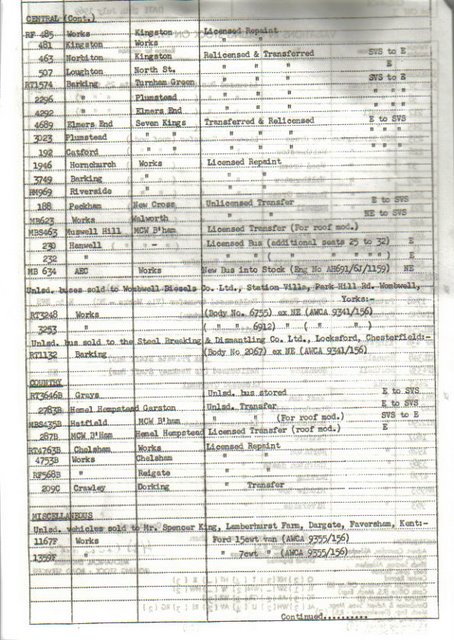 CENTRAL (Cont.)
RF 485 Works Kingston Licensed Repaint
481 Kingston Works " "
463 Norbiton Kingston Relicensed & Transferred SVS to E
507 Loughton North St. " " E
RT1574 Barking Turnham Green " " SVS to E
2296 " Plumstead " " " " "
4292 " Elmers End " " " " "
4689 Elmers End Seven Kings Transferred & Relicensed E to SVS
3023 Plumstead " " " " " " "
192 Catford " " " " " " "
1946 Hornchurch Works Licensed Repaint
3749 Barking " " "
RM969 Riverside " " "
188 Peckham New Cross Unlicensed Transfer E to SVS
MB623 Works Walworth " " NE to SVS
MBS463 Muswell Hill MCW B'ham Licensed Transfer (For roof mod.)
230 Hanwell ( " - " ) Licensed Bus (additional seats 25 to 32) E
232 " " " ( " " " " ) E
MB 634 AEC Works New Bus into Stock (Eng No AH691/6J/1159) NE
Unlsd. buses sold to Wombwell Diesels Co. Ltd., Station Villa, Park Hill Rd. Wombwell,
Yorks:-
RT3248 Works (Body No. 6755) ex NE (AWCA 9341/156)
3253 " ( " " 6912) " ( " " )
Unlsd. bus sold to the Steel Breaking & Dismantling Co. Ltd., Locksford, Chesterfield:-
RT1132 Barking (Body No 2067) ex NE (AWCA 9341/156)
COUNTRY
RT3646B Grays Unlsd. bus stored E to SVS
2783B Hemel Hempstead Garston Unlsd. Transfer E to SVS
MBS435B Hatfield MCW B'ham " " (For roof mod.) SVS to E
287B MCW B'Ham Hemel Hempstead Licensed Transfer (roof mod.) E
RT4763B Chelsham Works Licensed Repaint
4753B Works Chelsham " "
RF568B " Reigate " "
209C Crawley Dorking " Transfer
MISCELLANEOUS
Unlsd. vehicles sold to Mr. Spencer King, Lamberhurst Farm, Dargate, Faversham, Kent:-
1167F Works Ford 15cwt van (AWCA 9355/156)
1359F " " 7cwt " (AWCA 9355/156)
Continued..........